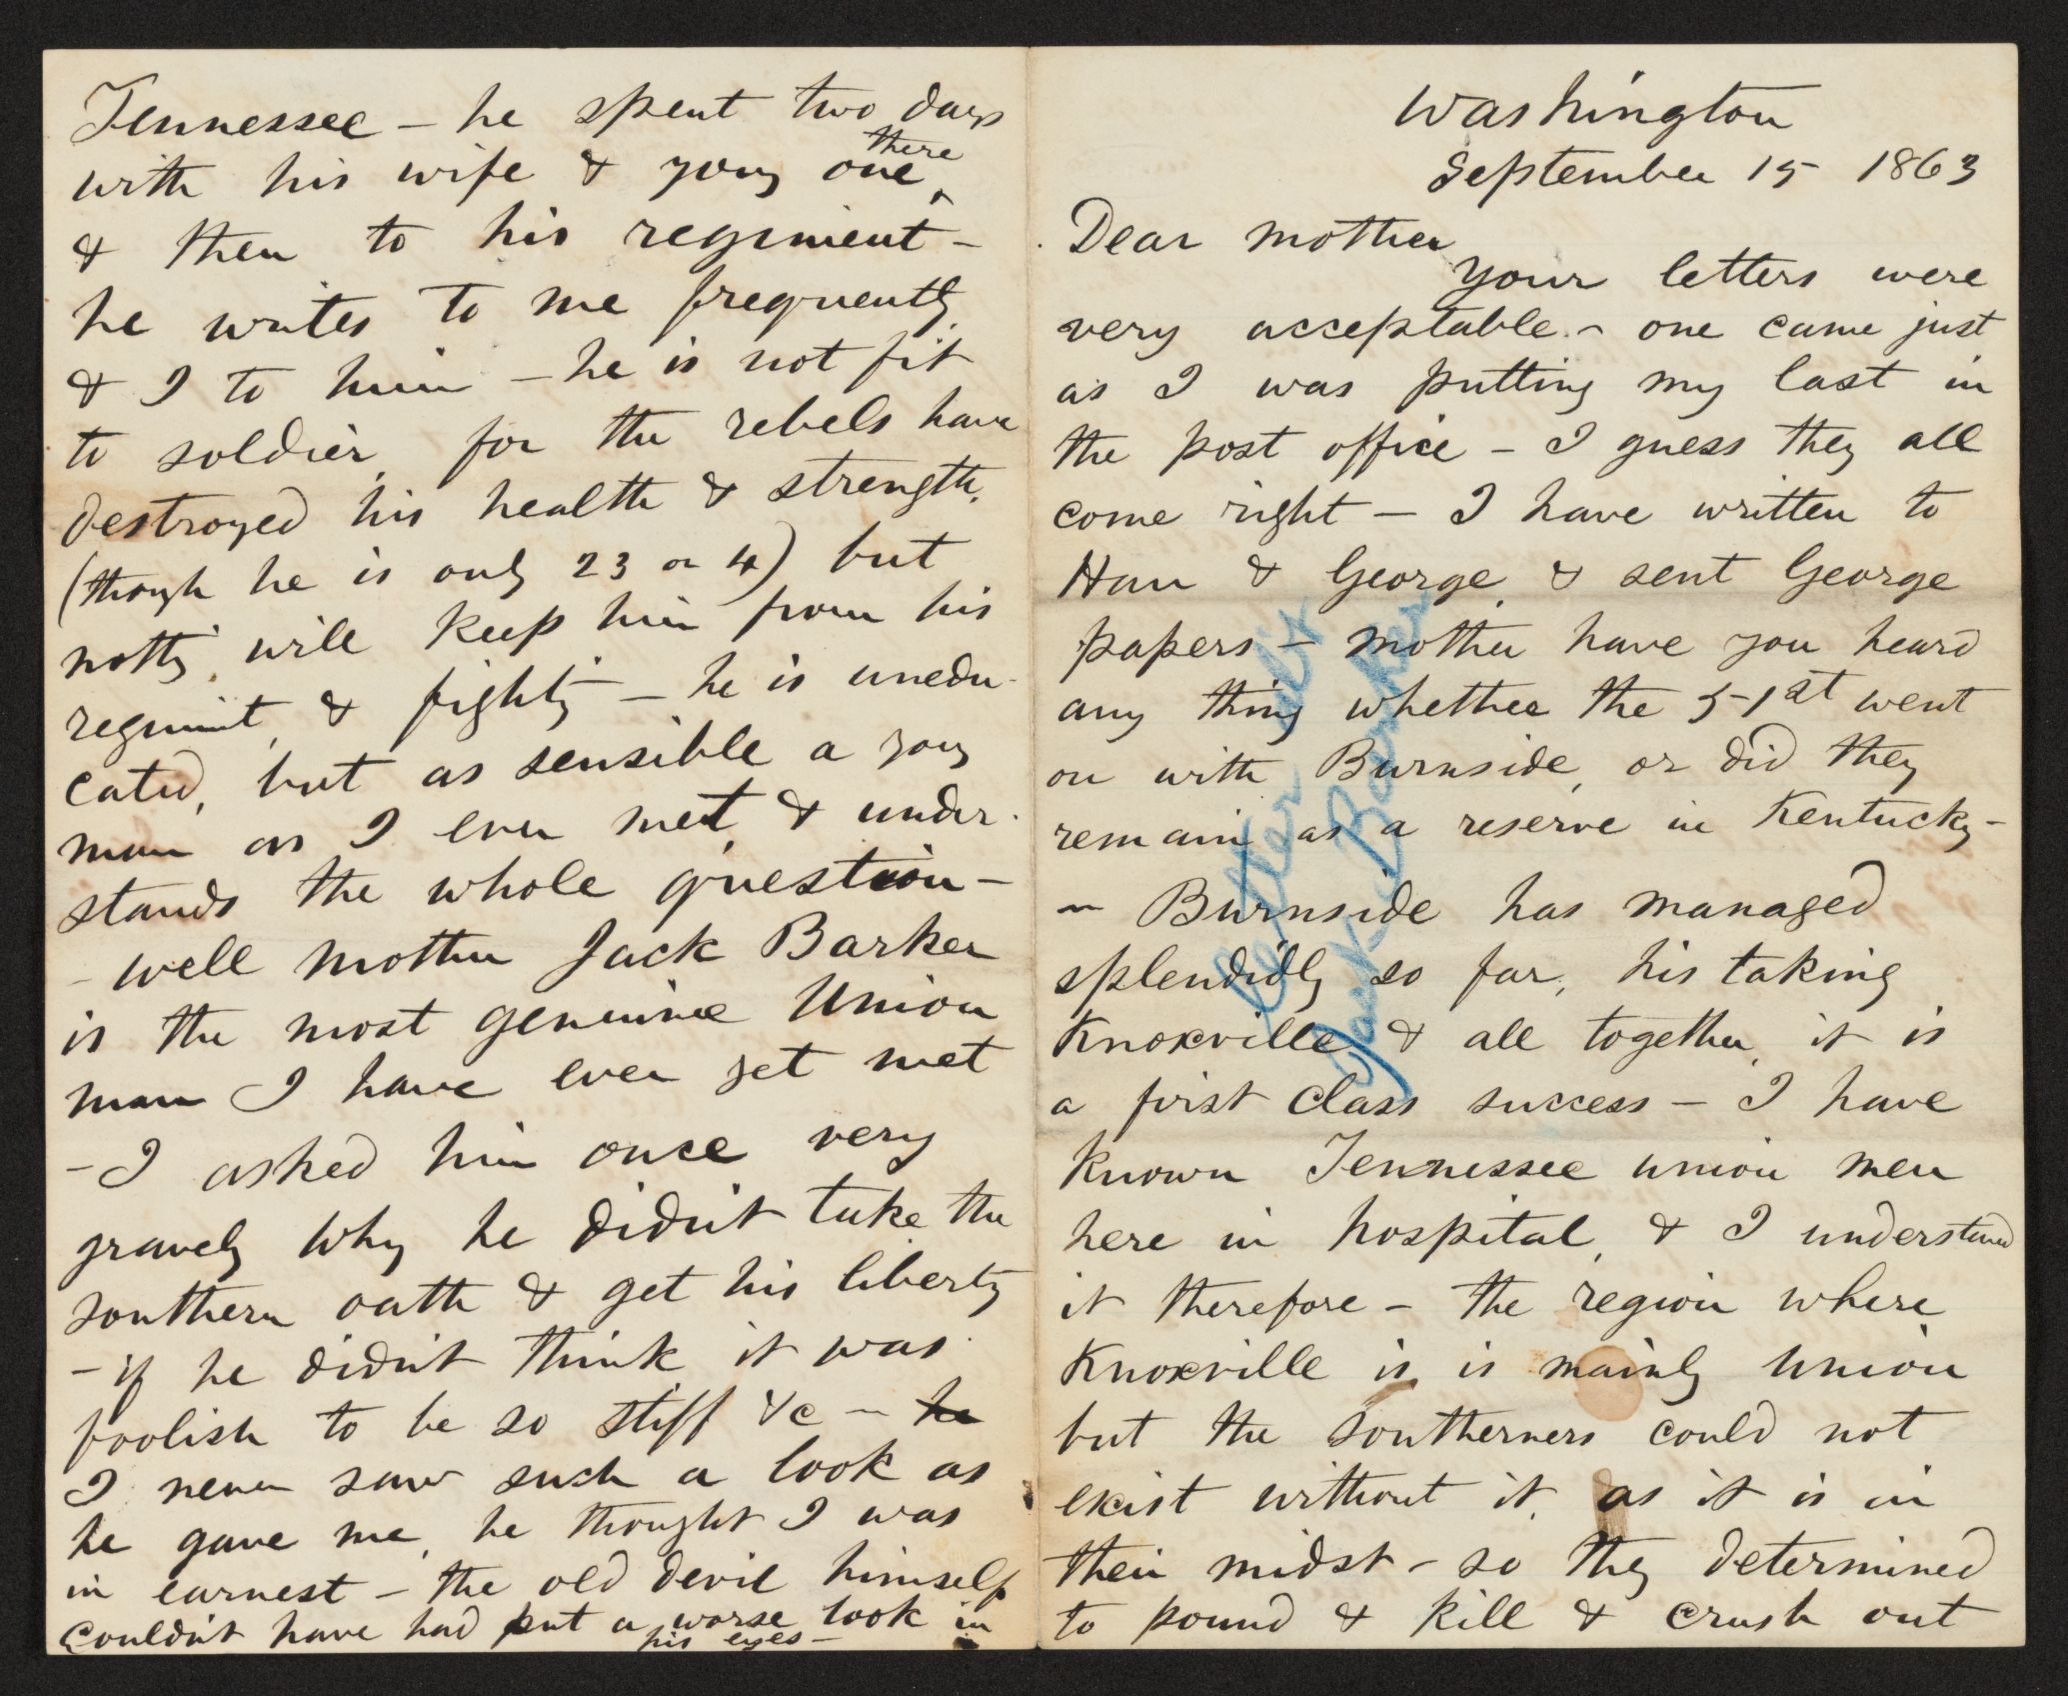 Washington
September 15 1863
Dear mother
Your letters were
very acceptable - one came just
as I was putting my last in
the post office - I guess they all
come right - I have written to
Han & George, & sent George
papers - mother have you heard
any thing whether the 51st went
on with Burnside, or did they
remain as a reserve in Kentucky -
- Burnside has managed
splendidly so far, his taking
Knoxville & all together, it is
a first class success - I have
known Tennessee union men
here in hospital, & I understand
it therefore - the region where
Knoxville is, is mainly Union
but the southerners could not
exist without it, as it is in
their midst - so they determined
to pound & kill & crush out
Letter
Jack Barker
Tennessee - he spent two days
with his wife & young one there
& then to his regiment -
he writes to me frequently
& I to him - he is not fit
to soldier, for the rebels have
destroyed his health & strength,
(though he is only 23 or 4) but
nothing will keep him from his
regiment, & fighting - he is unedu-
cated, but as sensible a young
man as I ever met, & under-
stands the whole question -
- well mother Jack Barker
is the most genuine Union
man I have ever yet met
- I asked him once very
gravely why he didn't take the
southern oath & get his liberty
- if he didn't think it was
foolish to be so stiff &c - he
I never saw such a look as
he gave me, he thought I was
in earnest - the old devil himself
couldn't have had put a worse look in
his eyes -